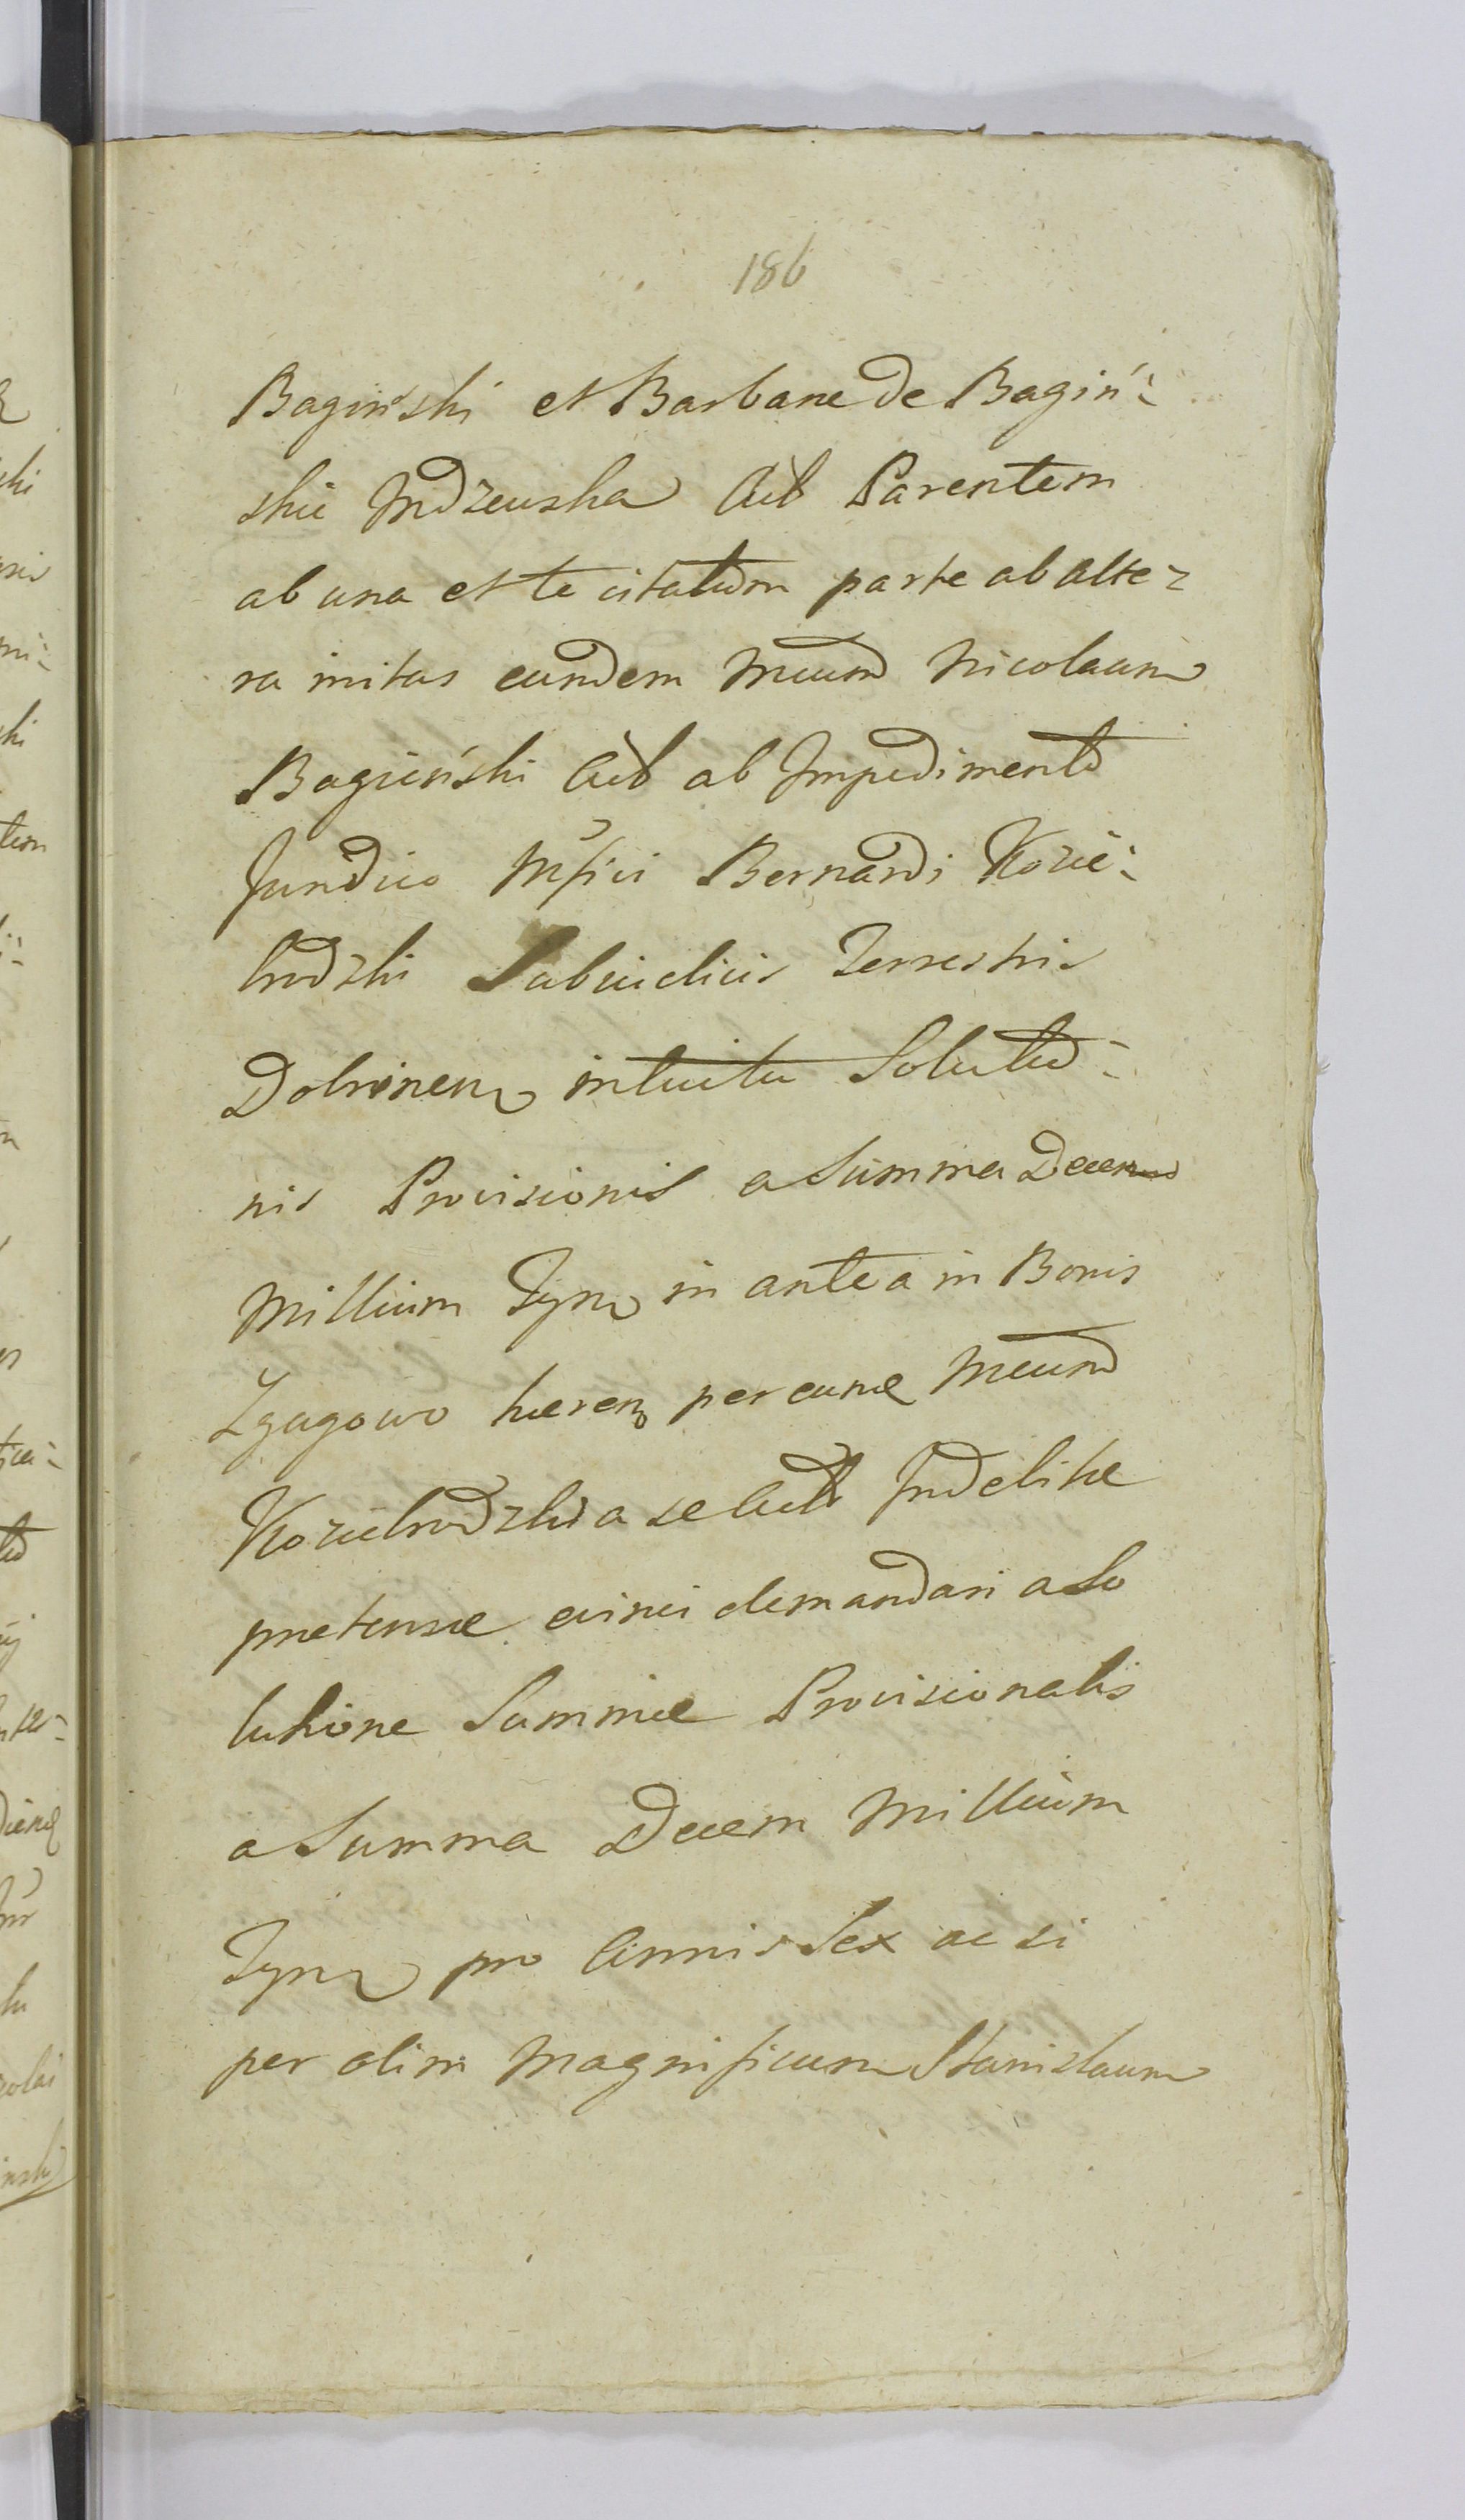 186
Bagiński et Barbaræ de Bagiń-
skie Mdzewska Act Parentem
ab una et te citatum parte ab alte-
ra initas eundem Mcum Nicolaum
Bagiński Act ab Impedimento
Juridico Mfici Bernardi Kozie-
brodzki Subiudicis Terrestris
Dobrinen intuitu Solutio-
nis Provisionis a Summa Decem
Millium Tyn in antea in Bonis
Zgagowo hæren per eund Mcum
Koziebrodzki a se Act Indebite
prætensæ evinci demandari a So
lutione Summæ Provisionalis
a Summa Decem Millium
Tyn pro Annis Sex ac si
per olim Magnificum Stanislaum